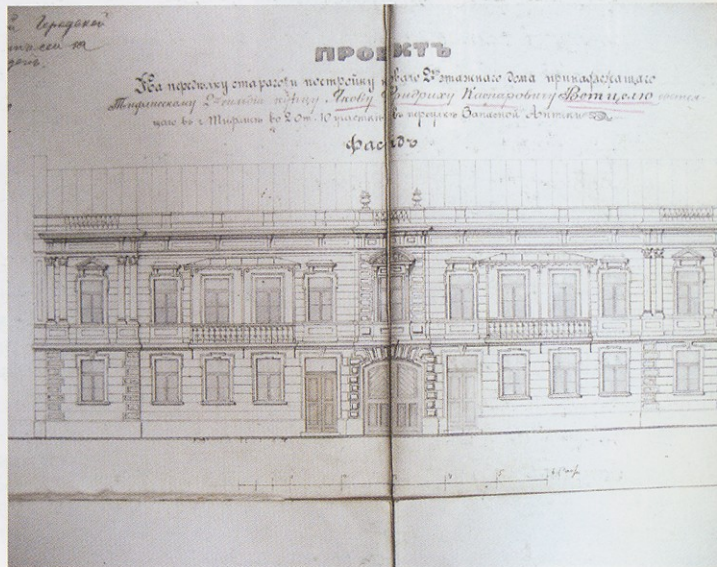 Городской
на
ПРОЕКТЪ
На передѣлку стараго и постройку новаго 2хъ этажнаго дома принадлежащаго
Тифлисскому 2й гильдіи купцу Якову Фридриху Каспаровичу Ветцелю
въ г. Тифлисѣ во 2 От. 10 участкѣ въ переулкѣ Запасной Аптеки
Фасадъ